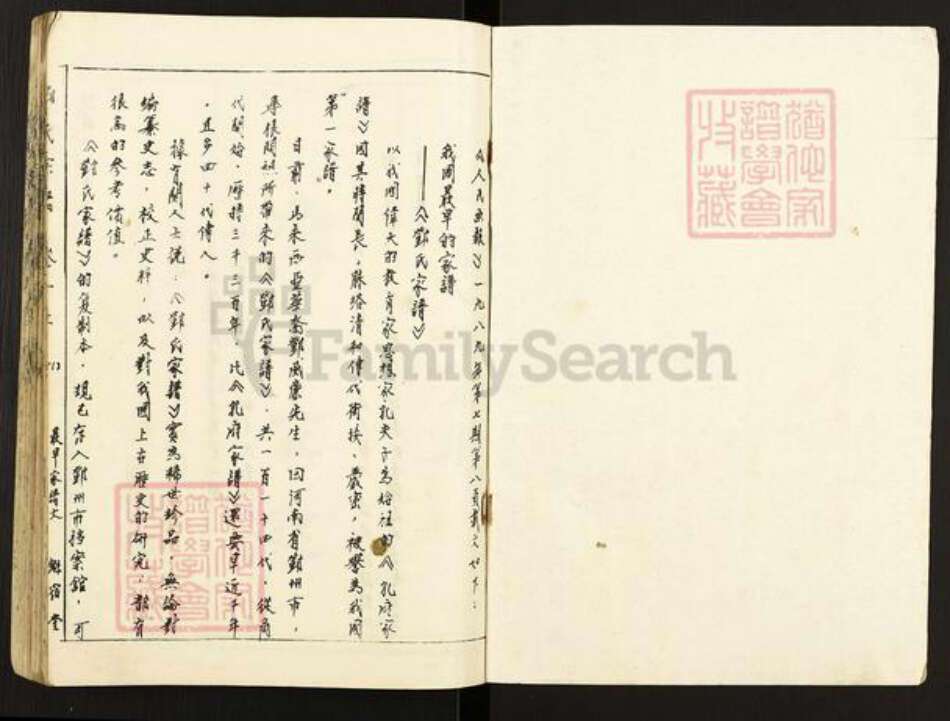 《人民画報》一九八九年第七期第八頁載文如下：
我国最早的家譜
——《鄭氏家譜》
以我国偉大的教育家思想家孔夫子為始祖的《孔府家
譜》因其時間長，脈络清和傳代銜接、嚴密，被譽為我國
第一家譜。
目前，馬来西亜華裔鄭威廉先生，回河南省鄭州市，
尋根問祖所帶来的《鄭氏家譜》，共一百一十四代，從商
代開始，歷時三千二百年，比《孔府家譜》還要早近千年
，且多四十代傳人。
據有關人士說：《鄭氏家譜》實為稀世珍品，無論對
編纂史志，校正史料，以及對我國上古歷史的研究，都有
很高的參考價值。
《鄭氏家譜》的复制本，現已存入鄭州市檔案館，可
氏宗譜 卷一 上 最早家譜文 堂
譜學會
收藏
FamilySearch